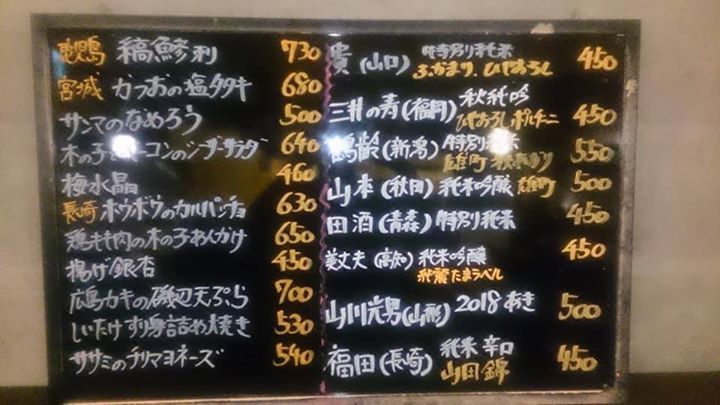 鹿児島 縞鯵刺 730
宮城 かつおの塩タタキ 680
サンマのなめろう 500
木の子 ーコンのシーザーサラダ 640
梅水晶 460
長崎 ホウボウのカルパッチョ 630
鶏もも肉の木の子あんかけ 650
揚げ銀杏 450
広島カキの磯辺天ぷら 700
しいたけすり身詰め焼き 530
ササミのチリマヨネーズ 540
貴(山口) 特別純米 450
ふかまり、ひやおろし
三井の寿(福岡) 秋純吟 450
ひやおろし ポルチーニ
鶴齢(新潟) 特別純米 550
雄町
山本(秋田) 純米吟醸 雄町 500
田酒(青森) 特別純米 450
美丈夫(高知) 純米吟醸 450
純麗たまラベル
山川光男(山形) 2018 あき 500
福田(長崎) 純米 辛口 450
山田錦